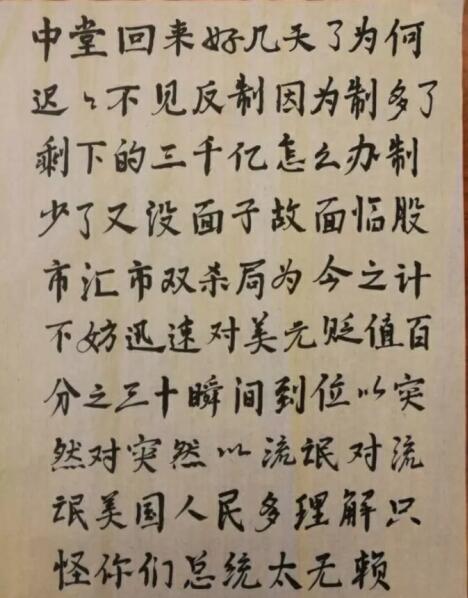 中堂回来好几天了为何
迟々不见反制因为制多了
剩下的三千亿怎么办制
少了又没面子故面临股
市汇市双杀局为今之计
不妨迅速对美元贬值百
分之三十瞬间到位以突
然对突然以流氓对流
氓美国人民多理解只
怪你们总统太无赖